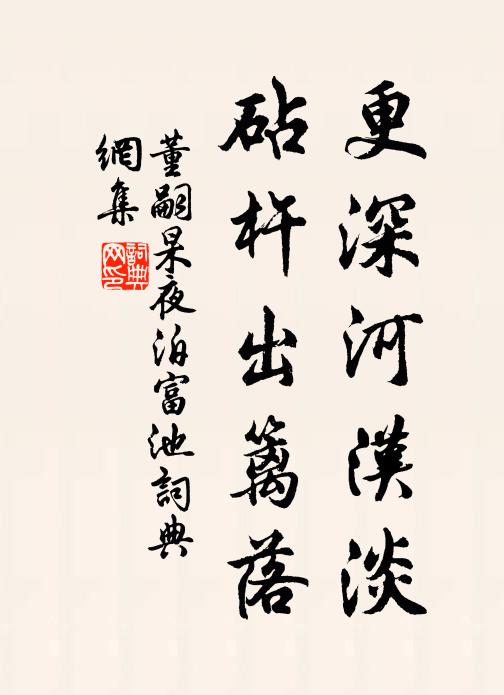 更深河漢淡
砧杵出籬落
董嗣杲夜泊富池詞典
網集
詞典
网印